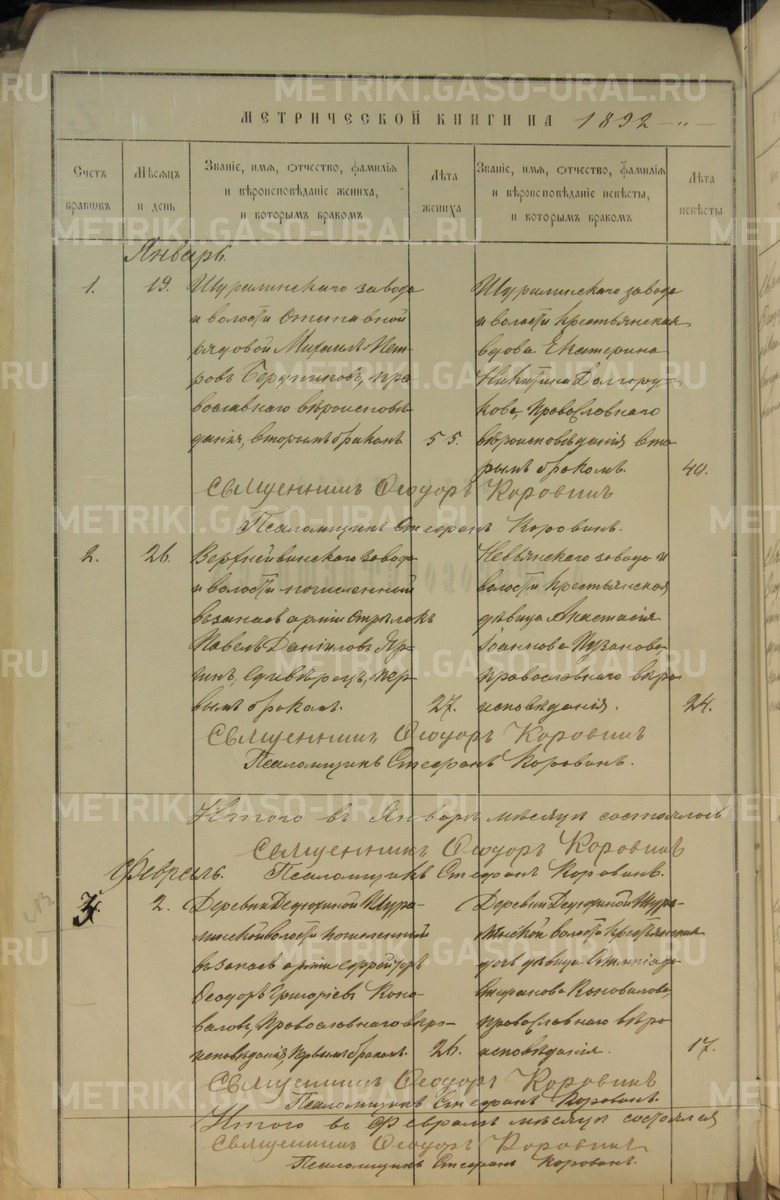 МЕТРИЧЕСКОЙ КНИГИ НА 1892
Счетъ браковъ
Мѣсяцъ и день
Званіе, имя, отчество, фамилія
и вѣроисповѣданіе жениха,
и которымъ бракомъ
Лѣта жениха
Званіе, имя, отчество, фамилія
и вѣроисповѣданіе невѣсты,
и которымъ бракомъ
Лѣта невѣсты
Январь
1. 19.
Шуралинскаго завода
и волости отставной
рядовой Михаилъ Пет-
ровъ пра-
вославнаго вѣроисповѣ-
данія, вторымъ бракомъ
55.
Шуралинскаго завода
и волости крестьянская
вдова Екатерина
Никитина Долгору-
кова, православнаго
вѣроисповѣданія вто-
рымъ бракомъ.
40.
Священникъ Ѳеодоръ Коровинъ
Псаломщикъ Стефанъ Коровинъ.
2. 26.
Верхнейвинскаго завода
и волости зачисленный
въ запасъ арміи стрѣлокъ
Павелъ Даніиловъ Яр-
единовѣрецъ, пер-
вымъ бракомъ.
27.
Невьянскаго завода и
волости крестьянская
дѣвица Анастасія
Іоаннова Пузанова
православнаго вѣро-
исповѣданія.
24.
Священникъ Ѳеодоръ Коровинъ
Псаломщикъ Стефанъ Коровинъ.
Итого въ Январѣ мѣсяцѣ состоялось
Священникъ Ѳеодоръ Коровинъ
Псаломщикъ Стефанъ Коровинъ.
Февраль.
3. 2.
Деревни Дедюхиной Шура-
линской волости зачисленный
въ запасъ арміи ефрейторъ
Ѳеодоръ Григоріевъ Коно-
валовъ, православнаго вѣро-
исповѣданія, первымъ бракомъ.
26.
Деревни Дедюхиной Шура-
линской волости крестьянская
дочь дѣвица Олимпіада
Стефанова Коновалова,
православнаго вѣро-
исповѣданія.
17.
Священникъ Ѳеодоръ Коровинъ
Псаломщикъ Стефанъ Коровинъ.
Итого въ Февралѣ мѣсяцѣ состоялся
Священникъ Ѳеодоръ Коровинъ
Псаломщикъ Стефанъ Коровинъ.
METRIKI.GASO-URAL.RU